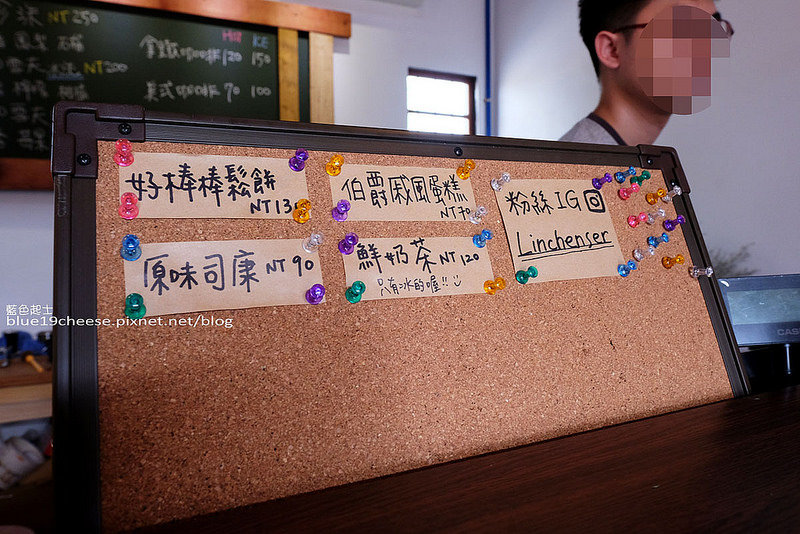 NT250
HOT ICE
拿鐵咖啡 120 150
NT200
美式咖啡 70 100
好棒棒鬆餅
NT13
伯爵戚風蛋糕
NT70
粉絲IG
Linchenser
原味司康 NT 90
鮮奶茶 NT 120
只有冰的喔!!
藍色起士
blue19cheese.pixnet.net/blog
CAS